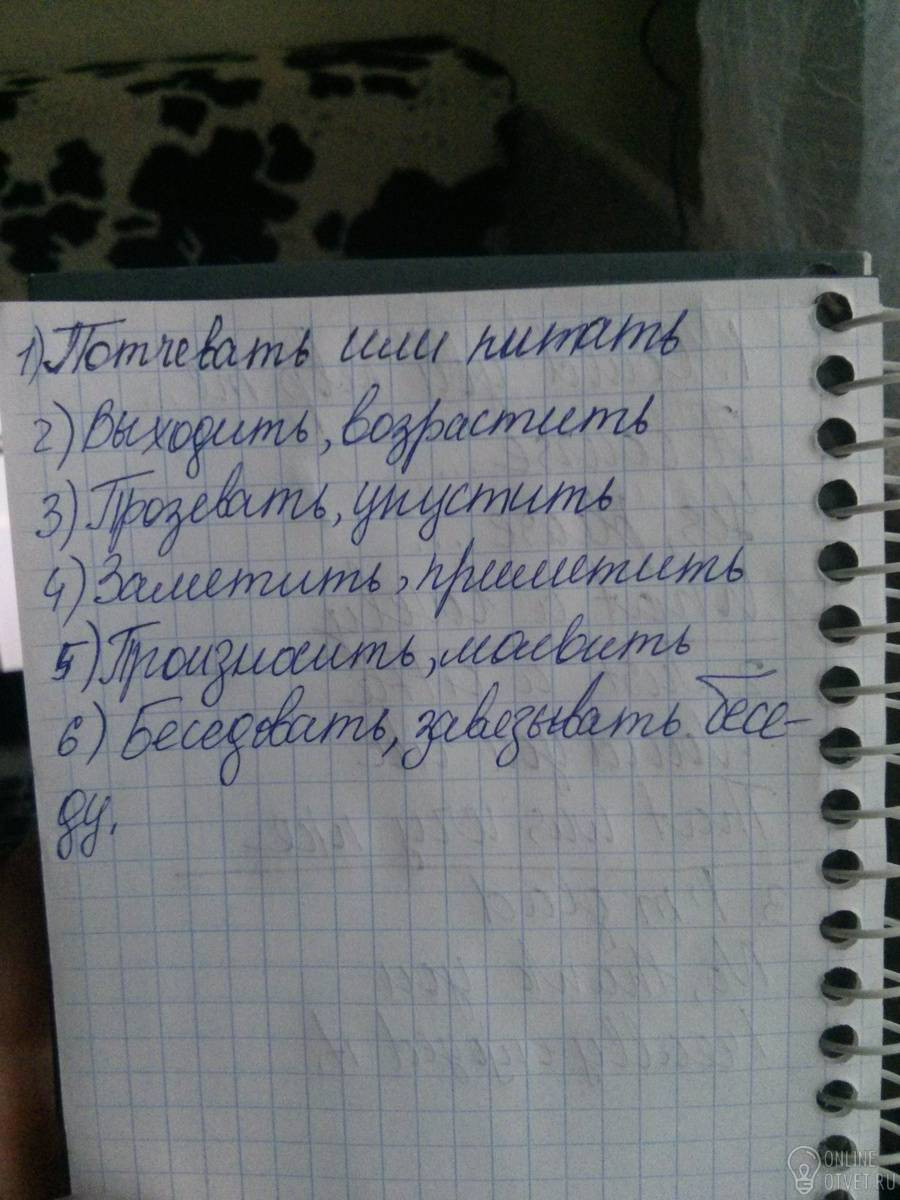 1) Потчевать или питать
2) Выходить, возрастить
3) Прозевать, упустить
4) Заметить, приметить
5) Произносить, молвить
6) Беседовать, завязывать бесе-
ду.
ONLINE
OTVET.RU